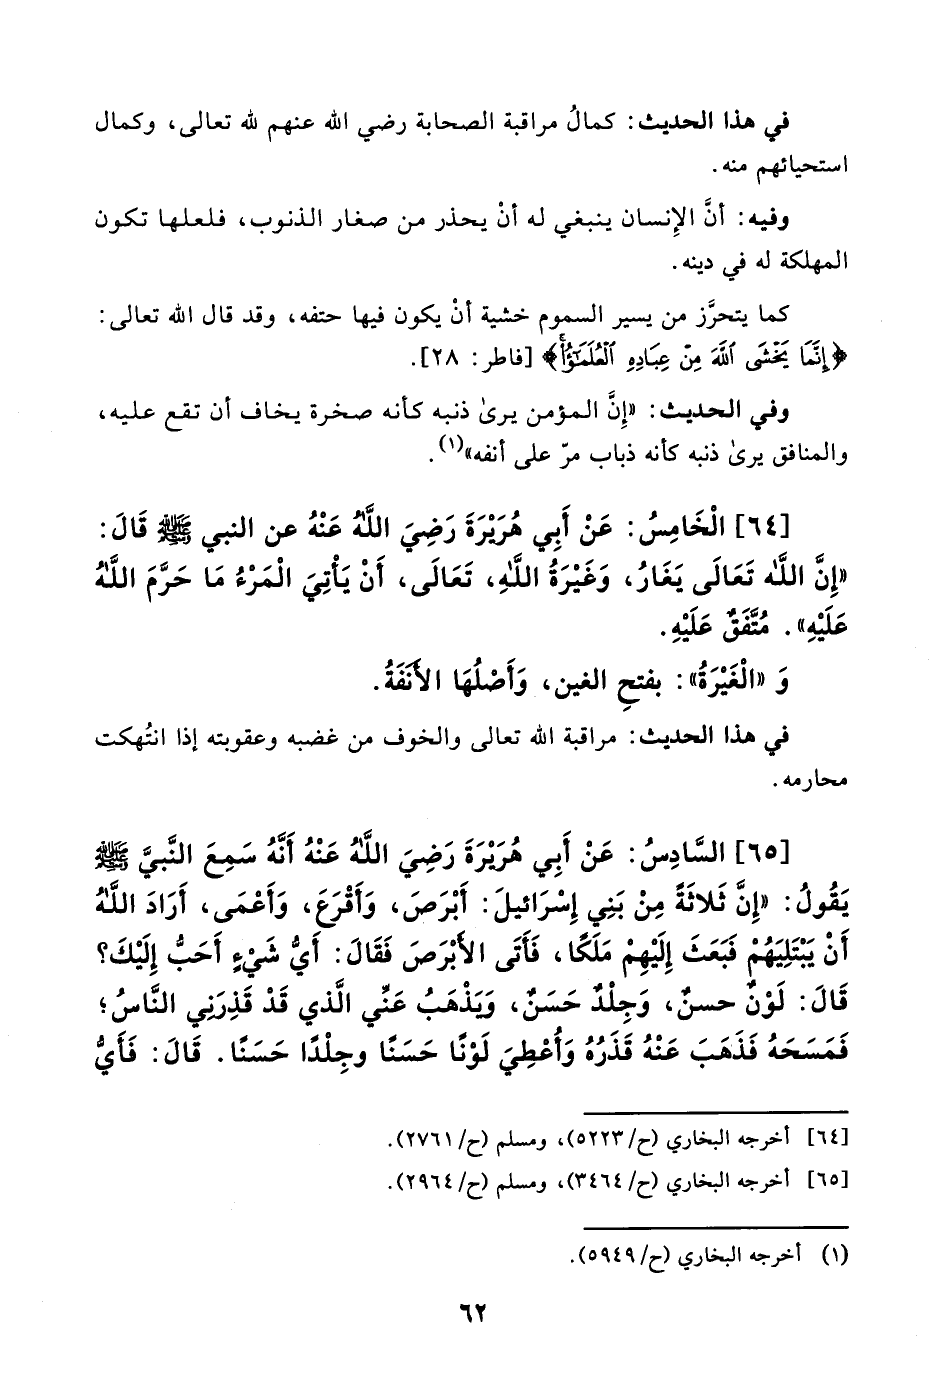 في هذا الحديث: كمالُ مراقبة الصحابة رضي الله عنهم لله تعالى، وكمال
استحيائهم منه.
وفيه: أنَّ الإنسان ينبغي له أنْ يحذر من صغار الذنوب، فلعلها تكون
المهلكة له في دينه.
كما يتحرَّز من يسير السموم خشية أنْ يكون فيها حتفه، وقد قال الله تعالى:
﴿إِنَّمَا يَخْشَى ٱللَّهَ مِنْ عِبَادِهِ ٱلْعُلَمَٰٓؤُاْ﴾ [فاطر: ٢٨].
وفي الحديث: «إِنَّ المؤمن يرىٰ ذنبه كأنه صخرة يخاف أن تقع عليه،
والمنافق يرىٰ ذنبه كأنه ذباب مرّ على أنفه»(١).
[٦٤] الْخَامِسُ: عَنْ أَبِي هُرَيْرَةَ رَضِيَ اللَّهُ عَنْهُ عن النبي ﷺ قَالَ:
«إِنَّ اللَّه تَعَالَى يَغَارُ، وَغَيْرَةُ اللَّهِ، تَعَالَى، أَنْ يَأْتِيَ الْمَرْءُ مَا حَرَّمَ اللَّهُ
عَلَيْهِ». مُتَّفَقٌ عَلَيْهِ.
وَ «الْغَيْرَةُ»: بفتحِ الغين، وَأَصْلُهَا الأَنَفَةُ.
في هذا الحديث: مراقبة الله تعالى والخوف من غضبه وعقوبته إذا انتُهكت
محارمه.
[٦٥] السَّادِسُ: عَنْ أَبِي هُرَيْرَةَ رَضِيَ اللَّهُ عَنْهُ أَنَّهُ سَمِعَ النَّبيَّ ﷺ
يَقُولُ: «إِنَّ ثَلاثَةً مِنْ بَنِي إِسْرَائيلَ: أَبْرَصَ، وَأَقْرَعَ، وَأَعْمَى، أَرَادَ اللَّهُ
أَنْ يَبْتَلِيَهُمْ فَبَعَثَ إِلَيْهِمْ مَلَكًا، فَأَتَى الأَبْرَصَ فَقَالَ: أَيُّ شَيْءٍ أَحَبُّ إِلَيْكَ؟
قَالَ: لَوْنٌ حسنٌ، وَجِلْدٌ حَسَنٌ، وَيَذْهَبُ عَنِّي الَّذي قَدْ قَذِرَنِي النَّاسُ؛
فَمَسَحَهُ فَذَهَبَ عَنْهُ قَذَرُهُ وَأُعْطِيَ لَوْنًا حَسَنًا وجِلْدًا حَسَنًا. قَالَ: فَأَيُّ
[٦٤] أخرجه البخاري (ح/٥٢٢٣)، ومسلم (ح/٢٧٦١).
[٦٥] أخرجه البخاري (ح/٣٤٦٤)، ومسلم (ح/٢٩٦٤).
(١) أخرجه البخاري (ح/٥٩٤٩).
٦٢